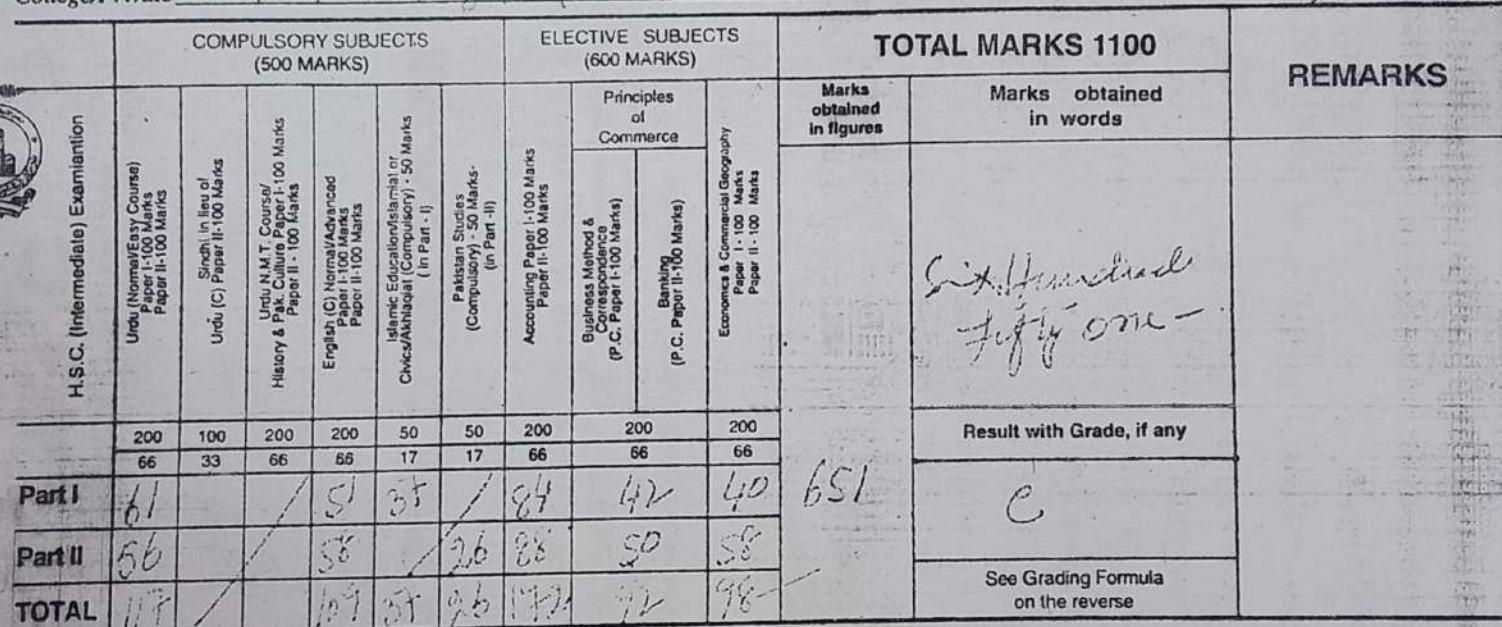 COMPULSORY SUBJECTS
(500 MARKS)
ELECTIVE SUBJECTS
(600 MARKS)
TOTAL MARKS 1100
REMARKS
H.S.C. (Intermediate) Examiantion
Urdu (Normal/Easy Course)
Paper I-100 Marks
Paper II-100 Marks
Sindhi in lieu of
Urdu (C) Paper II-100 Marks
Urdu N.M.T. Course/
History & Pak. Culture Paper I-100 Marks
Paper II - 100 Marks
English (C) Normal/Advanced
Paper I-100 Marks
Paper II-100 Marks
Islamic Education/Islamiat or
Civics/Akhlaqiat (Compulsory) - 50 Marks
( in Part - I)
Pakistan Studies
(Compulsory) - 50 Marks-
(in Part -II)
Accounting Paper I-100 Marks
Paper II-100 Marks
Principles
of
Commerce
Business Method &
Correspondence
(P.C. Paper I-100 Marks)
Banking
(P.C. Paper II-100 Marks)
Economics & Commercial Geography
Paper I - 100 Marks
Paper II - 100 Marks
Marks
obtained
in figures
Marks obtained
in words
Six Hundred
Fifty one -
200 100 200 200 50 50 200 200 200
66 33 66 66 17 17 66 66 66
Result with Grade, if any
Part I 61 / 51 37 / 84 42 40
651
C
Part II 56 / 58 / 26 88 50 58
TOTAL 117 / 109 37 26 172 92 98
See Grading Formula
on the reverse